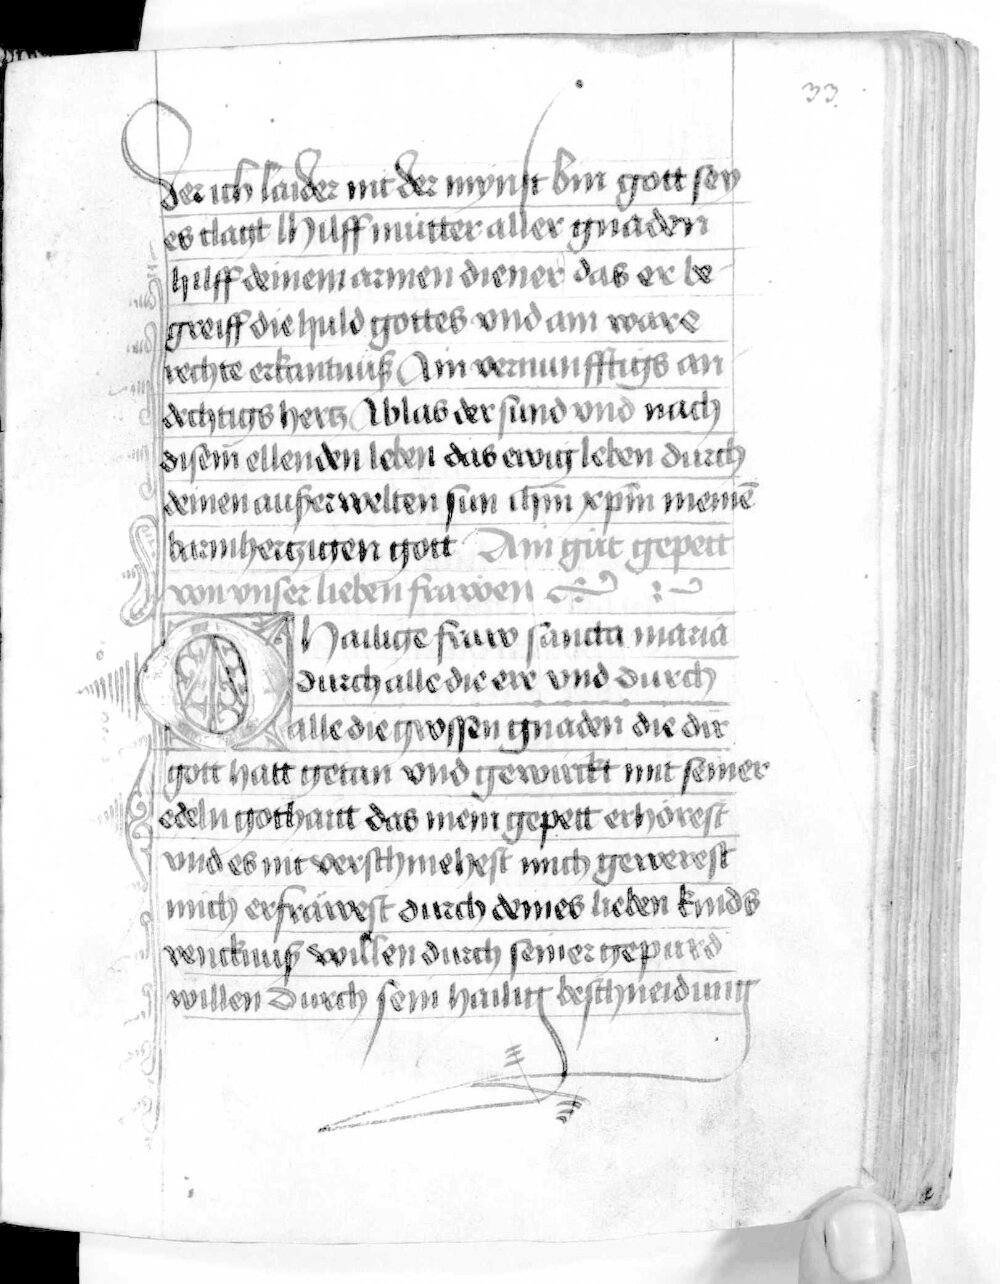 33
der ich laider nit der mynst bin gott sey
es clagt Hilff mutter aller gnaden
hilff deinem armen diener das er be
greiff die huld gottes vnd ain ware
rechte erkantnuß Ain vernunfftigs an
dechtigs hertz Ablas der sund vnd nach
disem ellenden leben das ewig leben durch
deinen außerwelten sun ihm xpm meinē
barmhertzigen gott Ain gut gepett
von vnser lieben frawen
O Hailige fraw sancta maria
durch alle die ere vnd durch
alle die grossen gnaden die dir
gott hatt getan vnd gewurckt mit seiner
edeln gothaitt das mein gepett erhörest
vnd es nit verschmehest mich gewerest
mich erfräwest durch deines lieben kinds
vencknuß willen durch seiner gepurd
willen durch sein hailig beschneidung